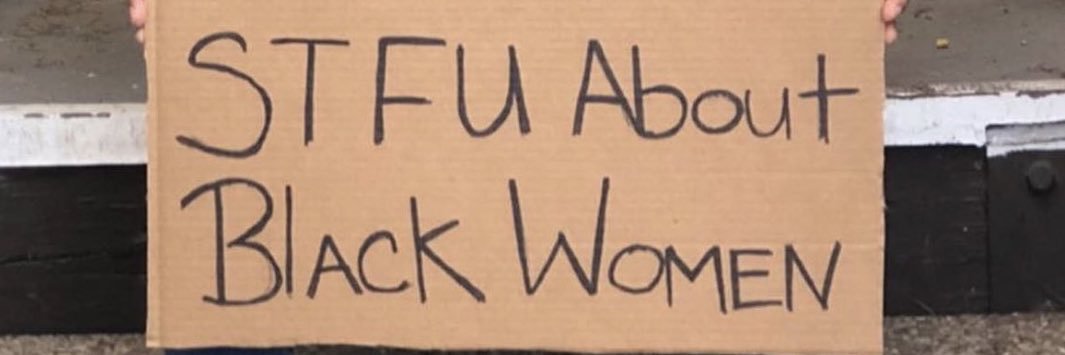 STFU About
Black Women